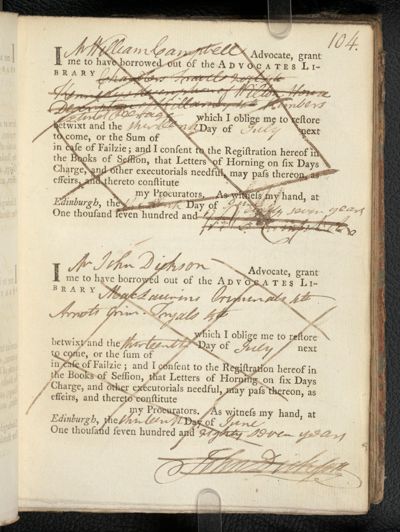 104.
I Mr William Campbell Advocate, grant
me to have borrowed out of the ADVOCATES LI-
BRARY Travels
of Wilton House
Killarney 4to Numbers
which I oblige me to restore
betwixt and the Day of July next
to come, or the Sum of
in case of Failzie; and I consent to the Registration hereof in
the Books of Session, that Letters of Horning on six Days
Charge, and other executorials needful, may pass thereon, as
effeirs, and thereto constitute
my Procurators. As witness my hand, at
Edinburgh, the Day of
One thousand seven hundred and eighty seven years
I Mr John Dickson Advocate, grant
me to have borrowed out of the ADVOCATES LI-
BRARY MacLaurens Criminals 4to
Arnots Crim: Tryals 4to
which I oblige me to restore
betwixt and the thirteenth Day of July next
to come, or the sum of
in case of Failzie; and I consent to the Registration hereof in
the Books of Session, that Letters of Horning on six Days
Charge, and other executorials needful, may pass thereon, as
effeirs, and thereto constitute
my Procurators. As witness my hand, at
Edinburgh, the thirteenth Day of June
One thousand seven hundred and eighty seven years
John Dickson